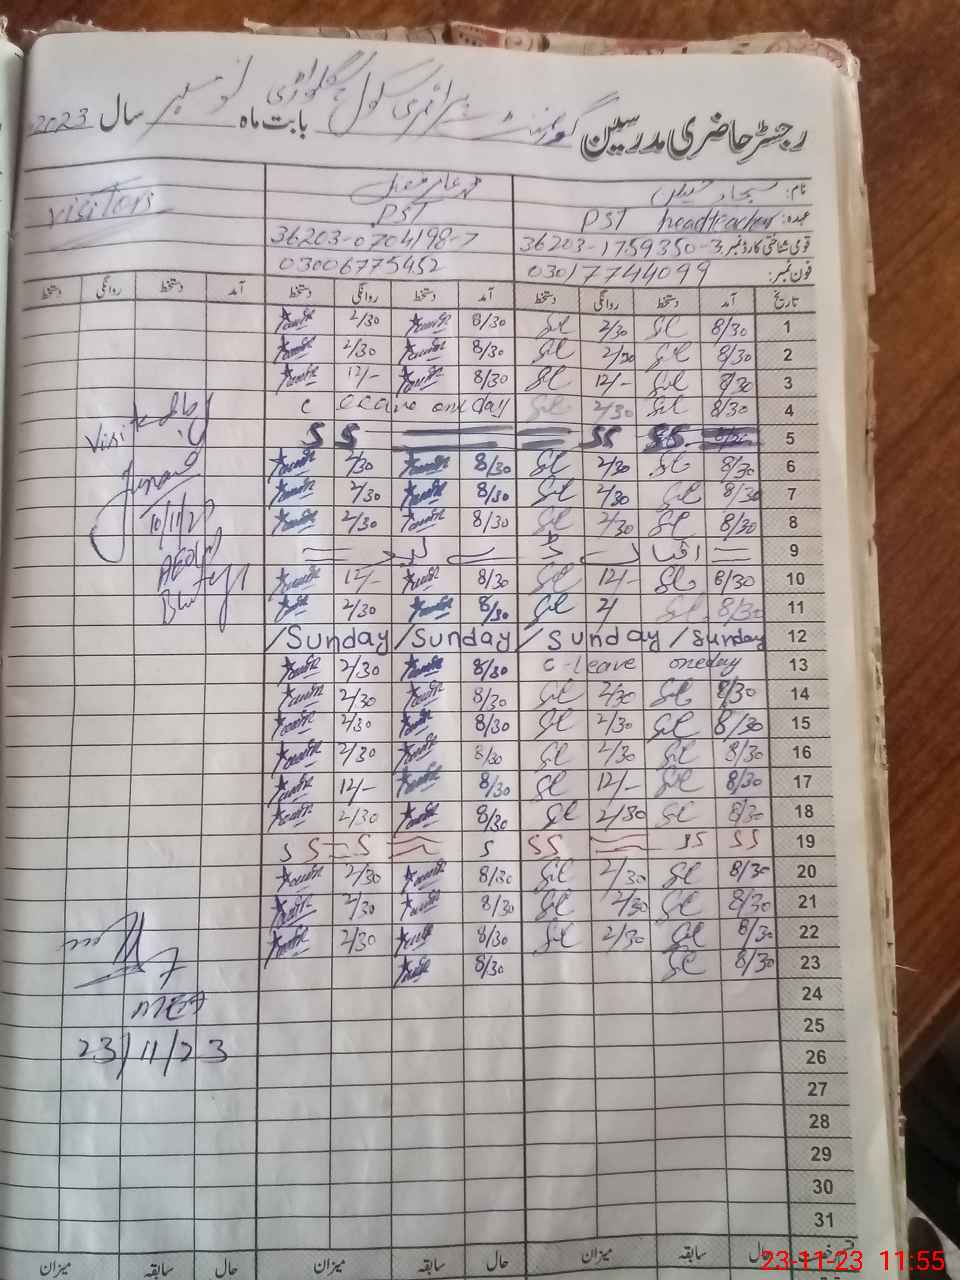 رجسٹر حاضری مدرسین گورنمنٹ پرائمری سکول بابت ماہ نومبر سال 2023
نام: سجاد
محمد عامر
Visitors
عہدہ: PST headteacher
PST
قومی شناختی کارڈ نمبر 36203-1759350-3
36203-0704198-7
فون نمبر: 03017744099
03006775452
تاریخ آمد دستخط روانگی دستخط آمد دستخط روانگی دستخط آمد دستخط روانگی دستخط
1 8/30 2/30 8/30 2/30
2 8/30 2/30 8/30 2/30
3 8/30 12/- 8/30 12/-
4 8/30 2/30 c leave one day
5 SS SS S S
6 8/30 2/30 8/30 2/30
7 8/30 2/30 8/30 2/30
8 8/30 2/30 8/30 2/30
9 = اقبال ڈے =
10 8/30 12/- 8/30 12/-
11 8/30 2/ 8/30 2/30
12 /Sunday /Sunday /Sunday /Sunday
13 c-leave oneday 8/30 2/30
14 8/30 2/30 8/30 2/30
15 8/30 2/30 8/30 2/30
16 8/30 2/30 8/30 2/30
17 8/30 12/- 8/30 12/-
18 8/30 2/30 8/30 2/30
19 SS SS SS S S S S
20 8/30 2/30 8/30 2/30
21 8/30 2/30 8/30 2/30
22 8/30 2/30 8/30 2/30
23 8/30 8/30
24
25
26
27
28
29
30
31
Visited by
10/11/23
AEO
23/11/23
حال سابقہ میزان حال سابقہ میزان حال سابقہ میزان
23-11-23 11:55